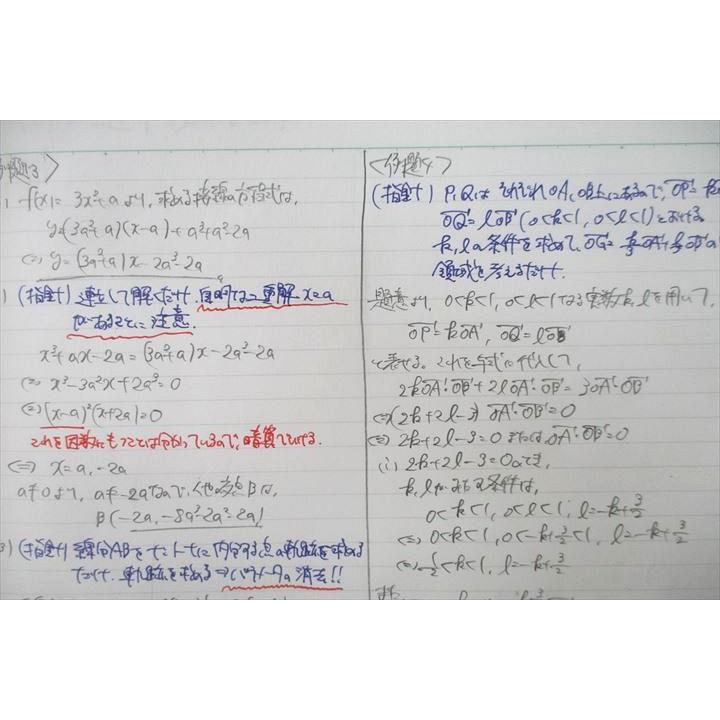 例題3>
f'(x)= 3x²+aより、求める接線の方程式は、
y=(3a²+a)(x-a)+a³+a²-2a
⇔ y=(3a²+a)x-2a³-2a
(指針) 連立して解くだけ、自明な 重解 x=a
があることに注意.
x³+ax-2a=(3a²+a)x-2a³-2a
⇔ x³-3a²x+2a³=0
⇔ (x-a)²(x+2a)=0
これを因数にもつことは分かっているので、暗算でいける.
⇔ x=a,-2a
a≠0より、a≠-2aなので、他の交点Bは、
B(-2a, -8a³-2a²-2a)
3) (指針) 線分ABをt:1-tに内分する点の軌跡を求める
だけ. 軌跡を求める⇒パラメータの消去!!
<例題4>
(指針) P,Qはそれぞれ OA, OB上にあるので、OP=
OQ=lOB (0<k<1, 0<l<1)とおける.
k,lの条件を求めて、OG=
領域を考えるだけ.
題意より、0<k<1, 0<l<1なる実数k,lを用いて、
OP=kOA, OQ=lOB
と表せる. これを与式に代入して、
2kOA・OB+2lOA・OB=3OA・OB
⇔(2k+2l-3)OA・OB=0
⇔ 2k+2l-3=0またはOA・OB=0
(i) 2k+2l-3=0のとき、
k,lがみたす条件は、
0<k<1, 0<l<1, l=-k+3/2
⇔ 0<k<1, 0<-k+3/2<1, l=-k+3/2
⇔ 1/2<k<1, l=-k+3/2